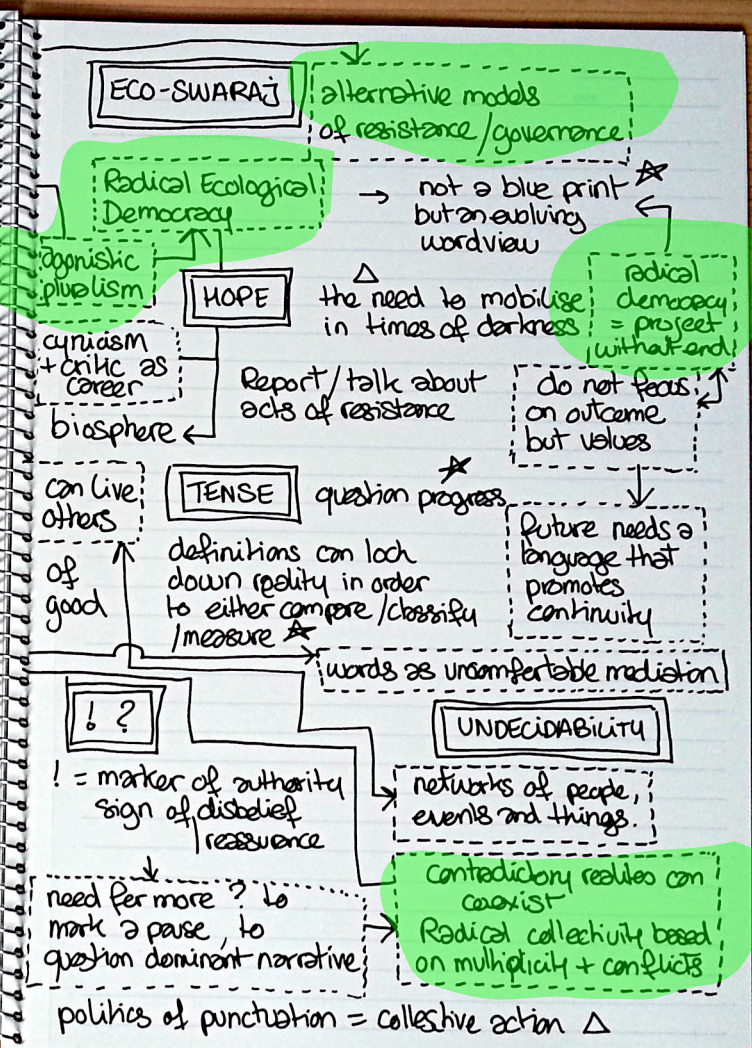 ECO-SWARAJ
alternative models
of resistance/governance
Radical Ecological
Democracy
→ not a blue print
but an evolving
wordview
agonistic
pluralism
HOPE
the need to mobilise
in times of darkness
radical
democracy
= project
without end
cynicism
+ critic as
career
biosphere
Report/talk about
acts of resistance
do not focus
on outcome
but values
can live
others
TENSE
question progress
future needs a
language that
promotes
continuity
of
good
definitions can lock
down reality in order
to either compare/classify
/measure
words as uncomfertable mediation
! ?
UNDECIDABILITY
! = marker of authority
sign of disbelief
/reassurence
networks of people,
events and things.
need for more ? to
mark a pause, to
question dominant narrative
contradictory realites can
coexist
Radical collectivity based
on multiplicity + conflicts
politics of punctuation = collective action △